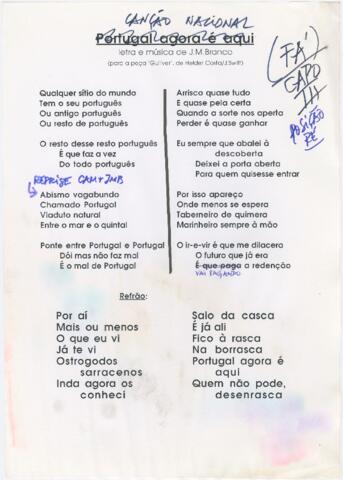 CANÇÃO NACIONAL
Portugal agora é aqui
letra e música de J.M.Branco
(para a peça 'Gulliver', de Helder Costa/J.Swift)
(FÁ)
CAPO
III
POSIÇÃO
RÉ
Qualquer sítio do mundo
Tem o seu português
Ou antigo português
Ou resto de português
O resto desse resto português
É que faz a vez
Do todo português
REPRISE GAM+JMB
Abismo vagabundo
Chamado Portugal
Viaduto natural
Entre o mar e o quintal
Ponte entre Portugal e Portugal
Dói mas não faz mal
É o mal de Portugal
Arrisca quase tudo
E quase pela certa
Quando a sorte nos aperta
Perder é quase ganhar
Eu sempre que abalei à
descoberta
Deixei a porta aberta
Para quem quisesse entrar
Por isso apareço
Onde menos se espera
Taberneiro de quimera
Marinheiro sempre à mão
O ir-e-vir é que me dilacera
O futuro que já era
É que paga a redenção
VAI PAGANDO
Refrão:
Por aí
Mais ou menos
O que eu vi
Já te vi
Ostrogodos
sarracenos
Inda agora os
conheci
Saio da casca
É já ali
Fico à rasca
Na borrasca
Portugal agora é
aqui
Quem não pode,
desenrasca